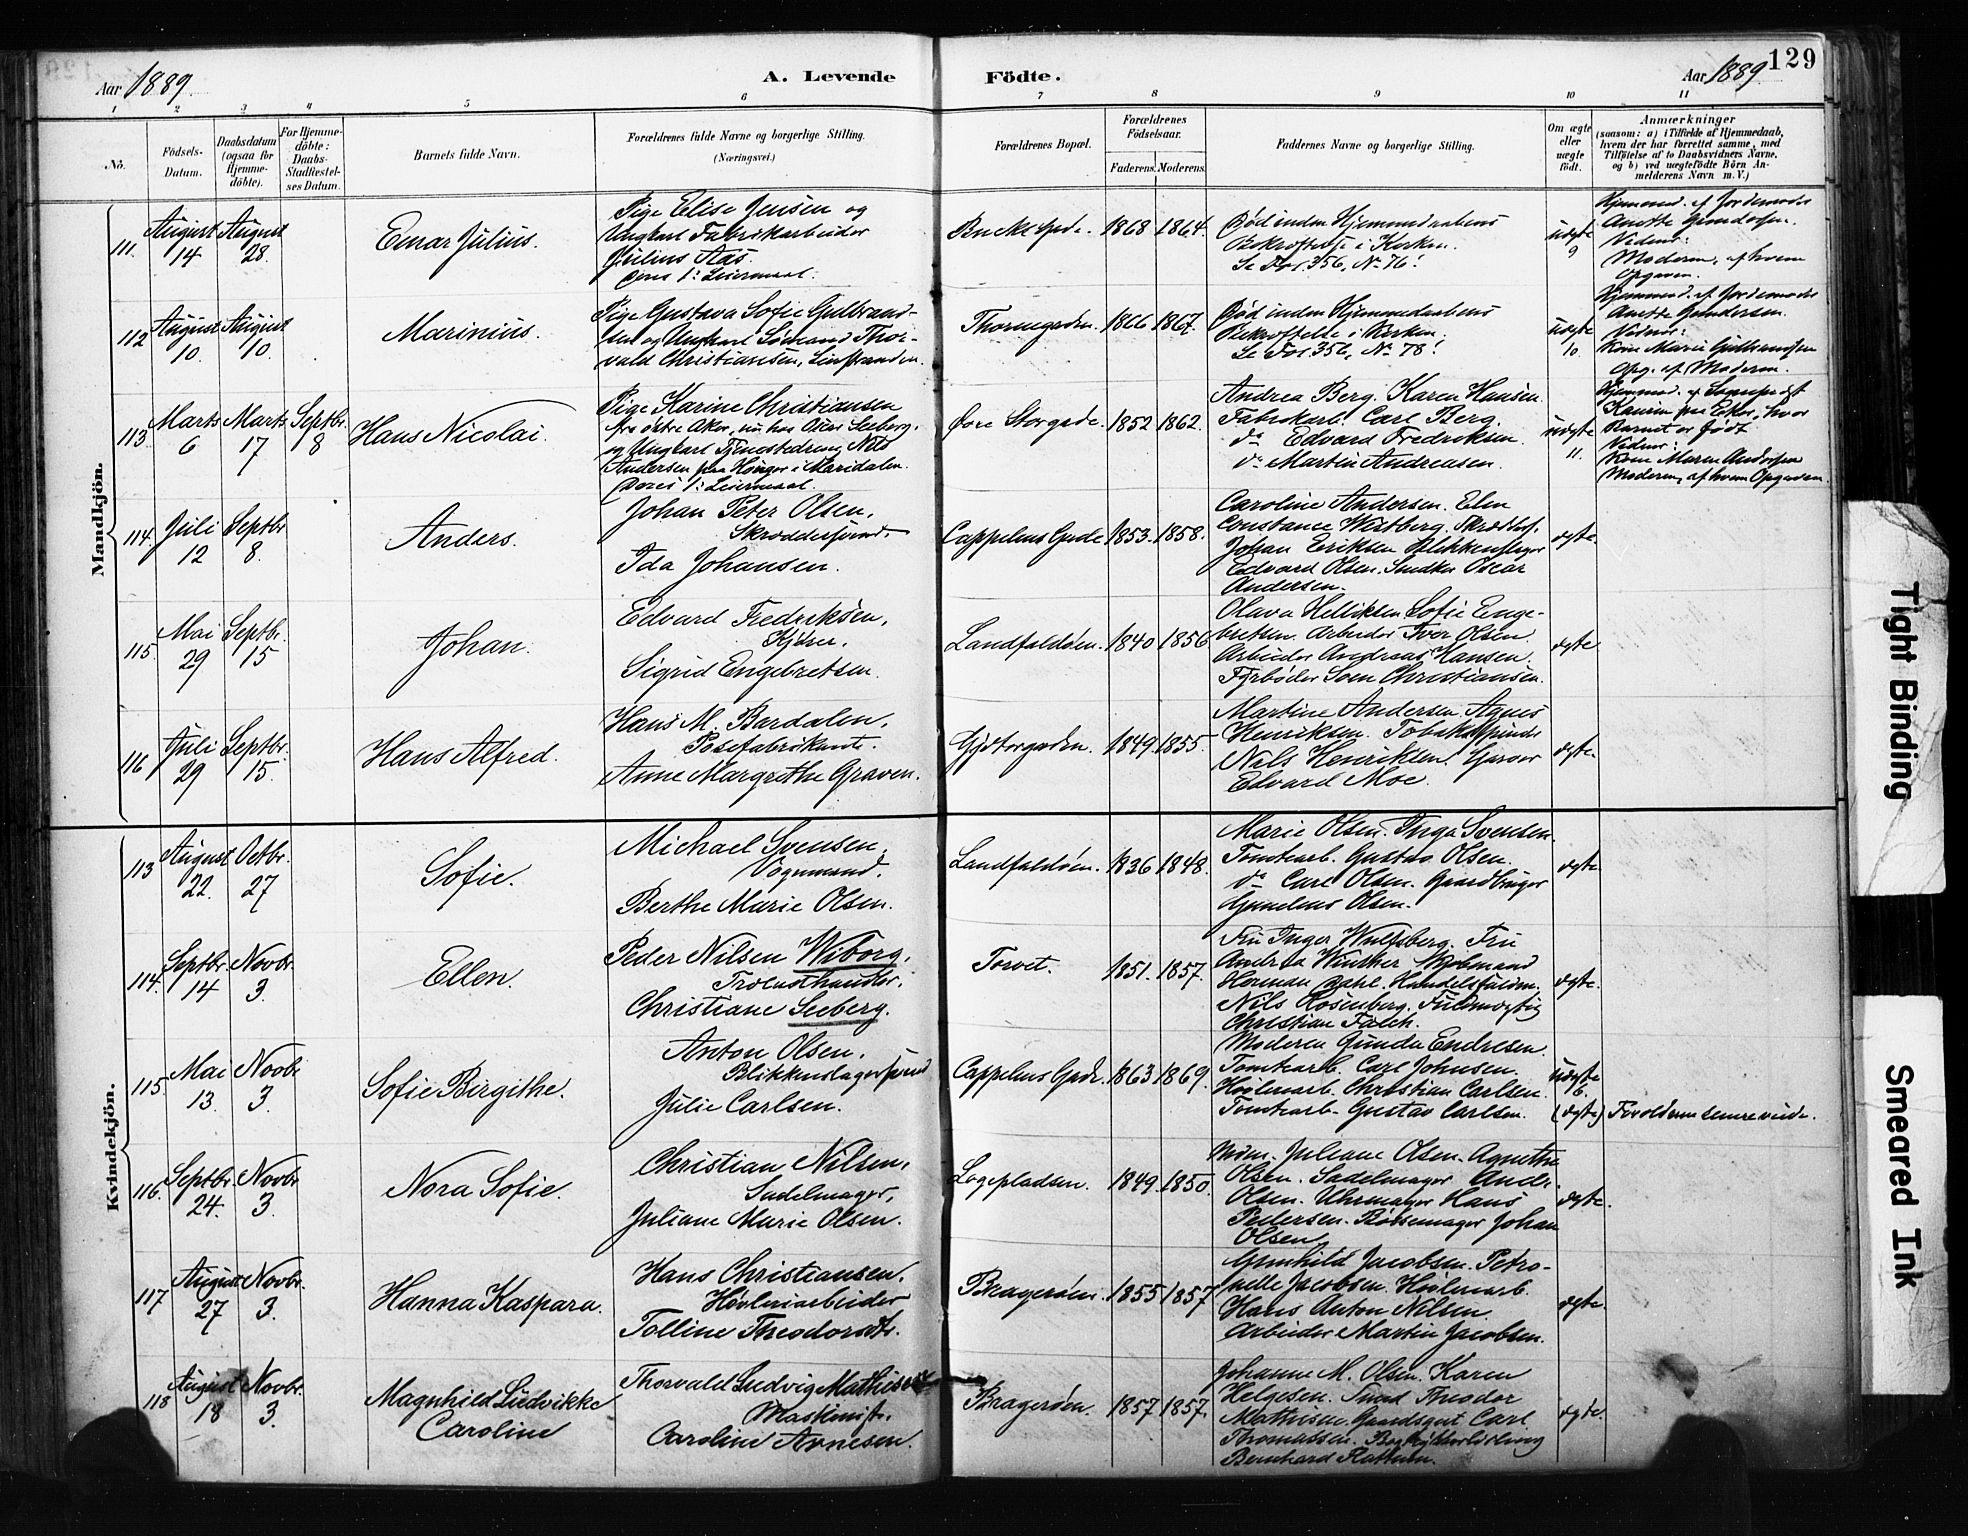 Aar 1889.
A. Levende
Födte.
Aar 1889
129
1 2 3 4 5 6 7 8 9 10 11
No.
Födsels-
Datum.
Daabsdatum
(ogsaa for
Hjemme-
döbte).
For Hjemme-
döbte:
Daabs-
Stadfæstel-
ses Datum.
Barnets fulde Navn.
Forældrenes fulde Navne og borgerlige Stilling.
(Næringsvei.)
Forældrenes Bopæl.
Forældrenes
Födselsaar.
Faderens. Moderens.
Faddernes Navne og borgerlige Stilling.
Om ægte
eller
uægte
födt.
Anmærkninger
(saasom: a) i Tilfælde af Hjemmedaab,
hvem der har forrettet samme, med
Tilföielse af to Daabsvidners Navne,
og b) ved uægtefödte Börn An-
melderens Navn m. V.)
Mandkjön.
111.
August
14
August
28.
Einar Julius.
Pige Elise Jensen og
Ungkarl Fabrikarbeider
Julius Aas.
Deres 1ste Leiermaal.
Bucks Gade.
1868
1864.
Död inden Hjemmedaabens
Bekræftelse i Kirken.
Se Fol. 356, No 76!
uægte
9
Hjemmed. af Jordemoder
Anette Gundersen.
Vidner:
Moderen, af hvem
Opgaven.
112
August
10.
August
10.
Marinius.
Pige Gustava Sofie Gulbrand-
sen og Ungkarl Sömand Thor-
vald Christiansen, Linstranden.
Thornegaden.
1866
1867.
Död inden Hjemmedaabens
Bekræftelse i Kirken.
Se Fol. 356, No 78!
uægte
10.
Hjemmed. af Jordemoder
Anette Gundersen.
Vidner:
Kone Marie Gulbrandsen
Opg. af Moderen.
113.
Marts
6
Marts
17
Septbr.
8
Hans Nicolai.
Pige Karine Christiansen
fra östre Aker, nu hos Oscar Seeberg,
og Ungkarl Tjenestedreng Nils
Andersen paa Hönger i Maridalen.
Deres 1ste Leiermaal.
Övre Storgade.
1852
1862.
Andrea Berg. Karen Hansen.
Fabrikarb. Carl Berg.
do Edvard Fredriksen.
do Martin Andreasen.
uægte
11.
Hjemmed. af Sogneprest
Kaurin paa Eker, hvor
Barnet er födt
Vidner:
Kone Maren Andersen
Moderen, af hvem Opgaven
114.
Juli
12
Septbr
8.
Anders.
Johan Peter Olsen,
Skræddersvend,
Ida Johansen.
Cappelens Gade
1853.
1858.
Caroline Andersen. Elen
Constance Wistberg. Skrædersv.
Johan Eriksen Blikkenslager
Edvard Olsen. Snedker Oscar
Andersen.
ægte
115.
Mai
29
Septbr.
15
Johan.
Edvard Fredriksen,
Kjörer,
Sigrid Engebretsen.
Landfaldöen.
1840
1856
Olava Helliksen Sofie Enge-
bretsen. Arbeider Iver Olsen
Arbeider Andreas Hansen.
Fyrböder Sven Christiansen.
ægte
116
Juli
29
Septbr.
15.
Hans Alfred.
Hans M. Bardalen,
Posefabrikant.
Anne Margrethe Graven.
Gjetergaden.
1849.
1855.
Martine Andersen. Agnes
Henriksen. Tobakspinder
Nils Henriksen. Garver
Edvard Moe.
ægte.
Kvindekjön.
113
August
22.
Octbr.
27
Sofie.
Michael Svensen,
Vognmand.
Berthe Marie Olsen.
Landfaldöen.
1836
1848.
Marie Olsen. Inga Svensen.
Tomtearb. Gustav Olsen.
do Carl Olsen. Gaardbruger
Gunelius Olsen.
ægte.
114.
Septbr.
14
Novbr.
3.
Ellen.
Peder Nilsen Wiborg,
Trælasthandler,
Christiane Seeberg.
Torvet.
1851.
1857.
Fru Inger Wulfsberg. Fru
Andrea Winther Kjöbmand
Herman Dahl. Handelsfuldm.
Nils Rosenberg. Fuldmægtig
Christian Falch.
ægte.
115.
Mai
13.
Novbr
3.
Sofie Birgithe.
Anton Olsen,
Blikkenslagersvend
Julie Carlsen.
Cappelens Gade.
1863
1869.
Moderen Gunda Endresen.
Tomtearb. Carl Johnsen.
Hövleriarb. Christian Carlsen.
Tomtearb. Gustav Carlsen.
uægte
6.
(ægte) Forældrene senere viede.
116.
Septbr.
24.
Novbr
3.
Nora Sofie.
Christian Nilsen,
Sadelmager,
Juliane Marie Olsen.
Logepladsen.
1849.
1850.
Mdm. Juliane Olsen. Agnethe
Olsen. Sadelmager Andr.
Olsen. Uhrmager Hans
Pedersen. Bössemager Johan
Olsen
ægte.
117
August
27
Novbr.
3.
Hanna Kaspara.
Hans Christiansen,
Hövleriarbeider
Tolline Theodorsdtr.
Bragerøen.
1855
1857
Gunhild Jacobsen. Petro-
nelle Jacobsen. Hövleriarb.
Hans Anton Nilsen
Arbeider Martin Jacobsen.
ægte.
118
August
18
Novbr.
3.
Magnhild Ludvikke
Caroline
Thorvald Ludvig Mathiesen
Maskinist,
Caroline Arnesen.
Bragerøen.
1857
1857.
Johanne M. Olsen. Karen
Helgesen. Smed Theodor
Mathisen. Gaardsgut Carl
Thomassen.
Bernhard Flattum.
ægte.
Tight Binding
Smeared Ink